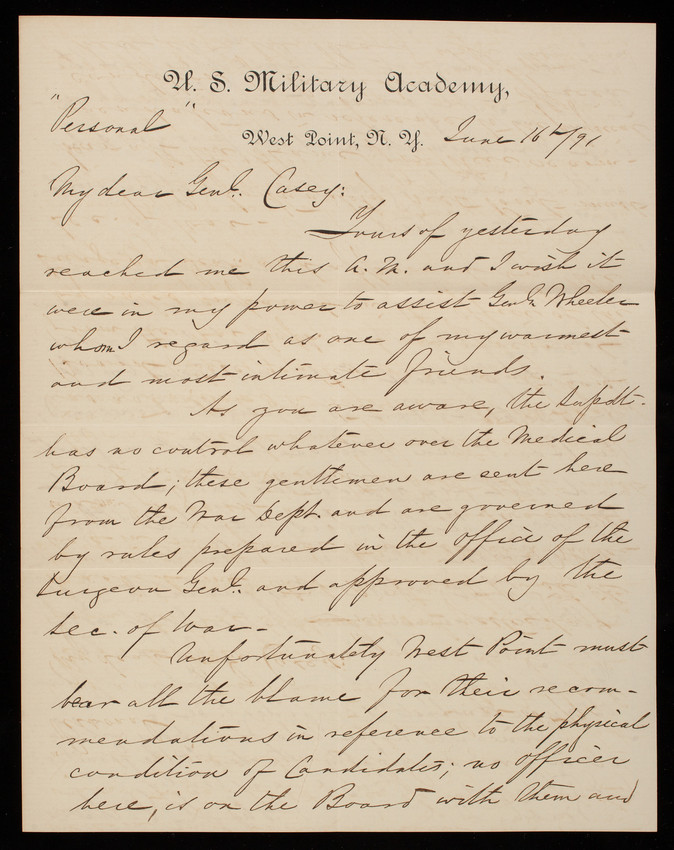 U. S. Military Academy,
"Personal"
West Point, N. Y. June 16th/91
My dear Genl. Casey:
Yours of yesterday
reached me this A.M. and I wish it
were in my power to assist Genl. Wheeler
whom I regard as one of my warmest
and most intimate friends.
As you are aware, the Supdt.
has no control whatever over the Medical
Board; these gentlemen are sent here
from the War Dept. and are governed
by rules prepared in the office of the
Surgeon Genl. and approved by the
Sec. of War -
Unfortunately West Point must
bear all the blame for their recom-
mendations in reference to the physical
condition of Candidates; no officer
here, is on the Board with them and